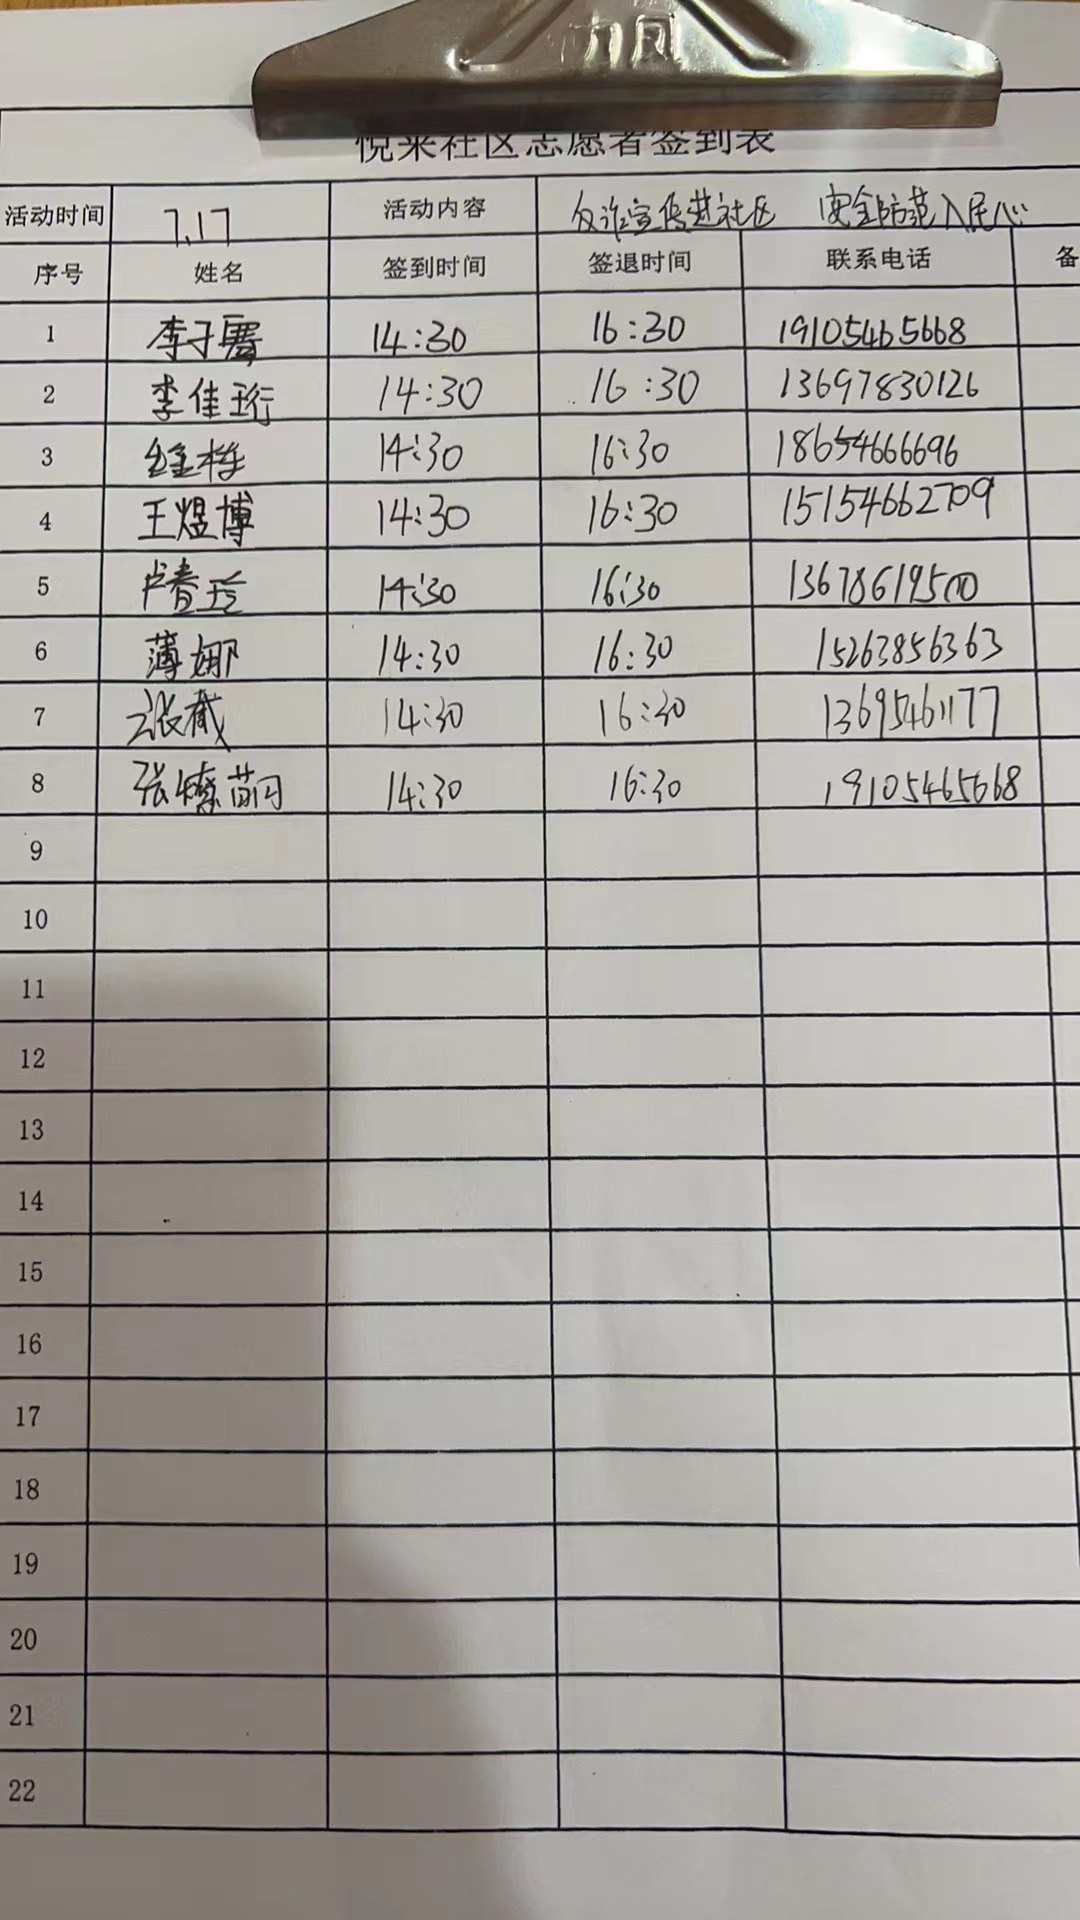 力凡
悦来社区志愿者签到表
活动时间 7.17 活动内容 反诈宣传进社区 安全防范入民心
序号 姓名 签到时间 签退时间 联系电话 备
1 李子 14:30 16:30 19105465668
2 李佳珩 14:30 16:30 13697830126
3 14:30 16:30 18654666696
4 王煜博 14:30 16:30 15154662709
5 卢春玲 14:30 16:30 13678619500
6 薄娜 14:30 16:30 15263856363
7 张葳 14:30 16:30 13695461177
8 张 14:30 16:30 19105465668
9
10
11
12
13
14
15
16
17
18
19
20
21
22